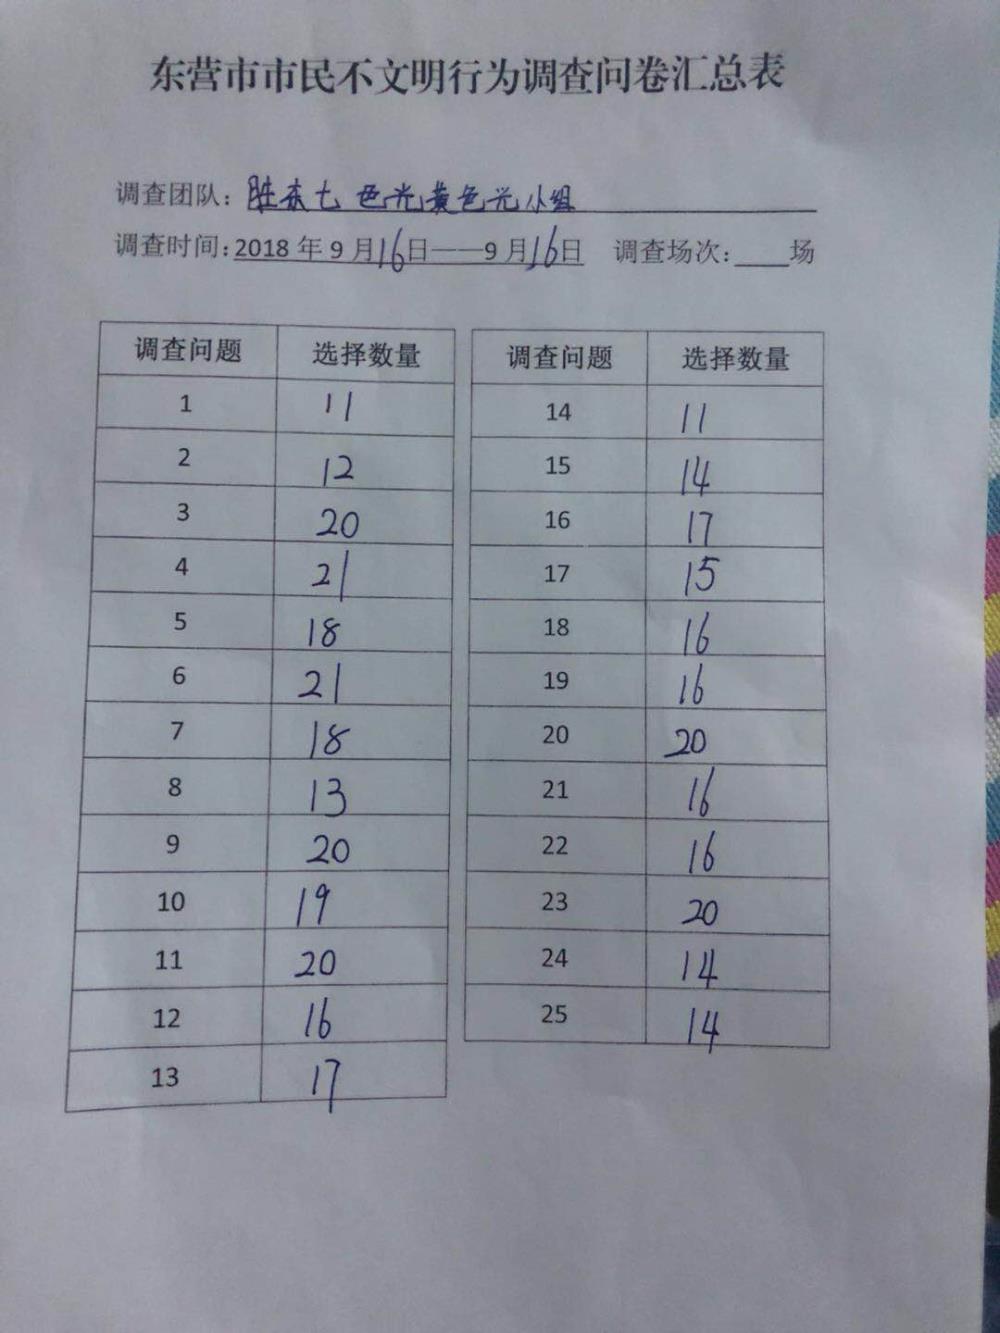 东营市市民不文明行为调查问卷汇总表
调查团队：胜东七色光黄色光小组
调查时间：2018年9月16日——9月16日 调查场次：____场
调查问题 选择数量 调查问题 选择数量
1 11 14 11
2 12 15 14
3 20 16 17
4 21 17 15
5 18 18 16
6 21 19 16
7 18 20 20
8 13 21 16
9 20 22 16
10 19 23 20
11 20 24 14
12 16 25 14
13 17